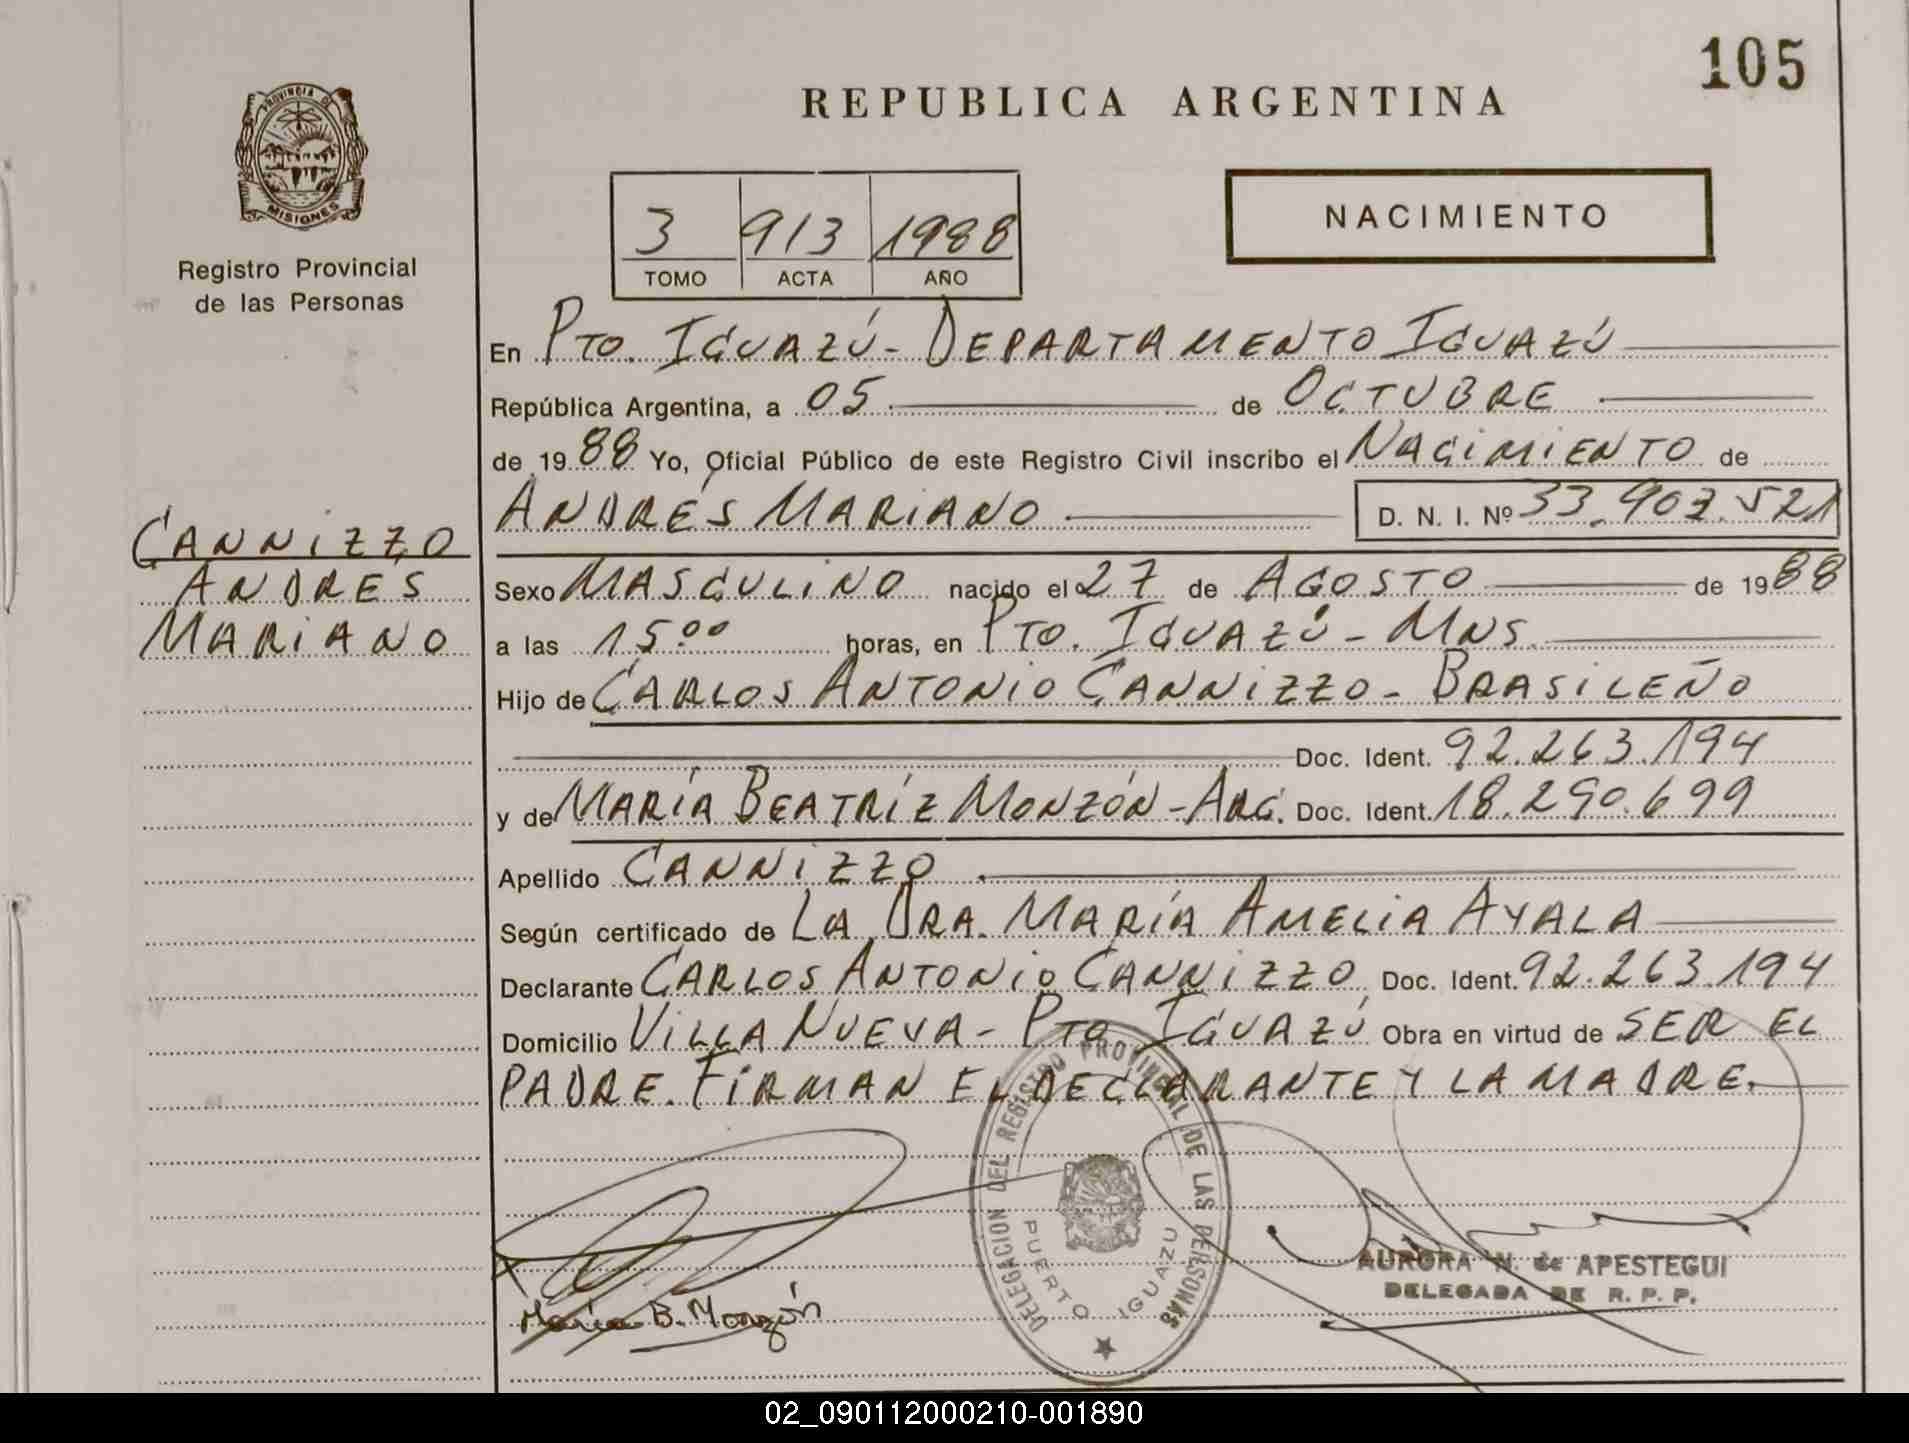 105
REPUBLICA ARGENTINA
PROVINCIA DE
MISIONES
Registro Provincial
de las Personas
3 913 1988
TOMO ACTA AÑO
NACIMIENTO
En Pto. Iguazú - Departamento Iguazú
República Argentina, a 05 de Octubre
de 1988 Yo, Oficial Público de este Registro Civil inscribo el Nacimiento de
Andrés Mariano D. N. I. Nº 33.903.521
Cannizzo
Andrés
Mariano
Sexo Masculino nacido el 27 de Agosto de 1988
a las 15:00 horas, en Pto. Iguazú - Mns.
Hijo de Carlos Antonio Cannizzo - Brasileño
Doc. Ident. 92.263.194
y de María Beatríz Monzón - Arg. Doc. Ident. 18.290.699
Apellido Cannizzo
Según certificado de La Dra. María Amelia Ayala
Declarante Carlos Antonio Cannizzo Doc. Ident. 92.263.194
Domicilio Villa Nueva - Pto Iguazú Obra en virtud de ser el
padre. Firman el declarante y la madre.
DELEGACION DEL REGISTRO PROVINCIAL DE LAS PERSONAS
PUERTO IGUAZU
María B. Monzón
AURORA N. de APESTEGUI
DELEGADA DE R. P. P.
02_090112000210-001890